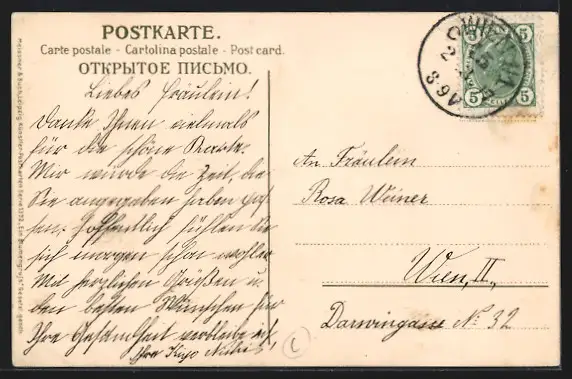 POSTKARTE.
Carte postale - Cartolina postale - Post card.
ОТКРЫТОЕ ПИСЬМО.
Liebes Fräulein!
Danke Ihnen vielmals
für die schöne Karte.
Mir würde die Zeit, die
Sie angegeben haben pas-
sen. Hoffentlich fühlen Sie
sich morgen schon wohler
Mit herzlichen Grüßen u.
den besten Wünschen für
Ihre Gesundheit verbleibe ich
Ihre
An Fräulein
Rosa Weiner
Wien, II.,
Darwingasse No 32
WIEN
5 5
5 5
Meissner & Buch, Leipzig Künstler-Postkarten Serie